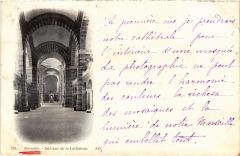 Je pourrais que je prendrais
notre cathédrale pour
l'intérieur d'une mosquée
La photographie ne peut
pas rendre l'harmonie
des couleurs la richesse
des mosaïques et la
lumière de notre Marseille
qui embellit tout.
Marseille. - Intérieur de la Cathédrale
ND